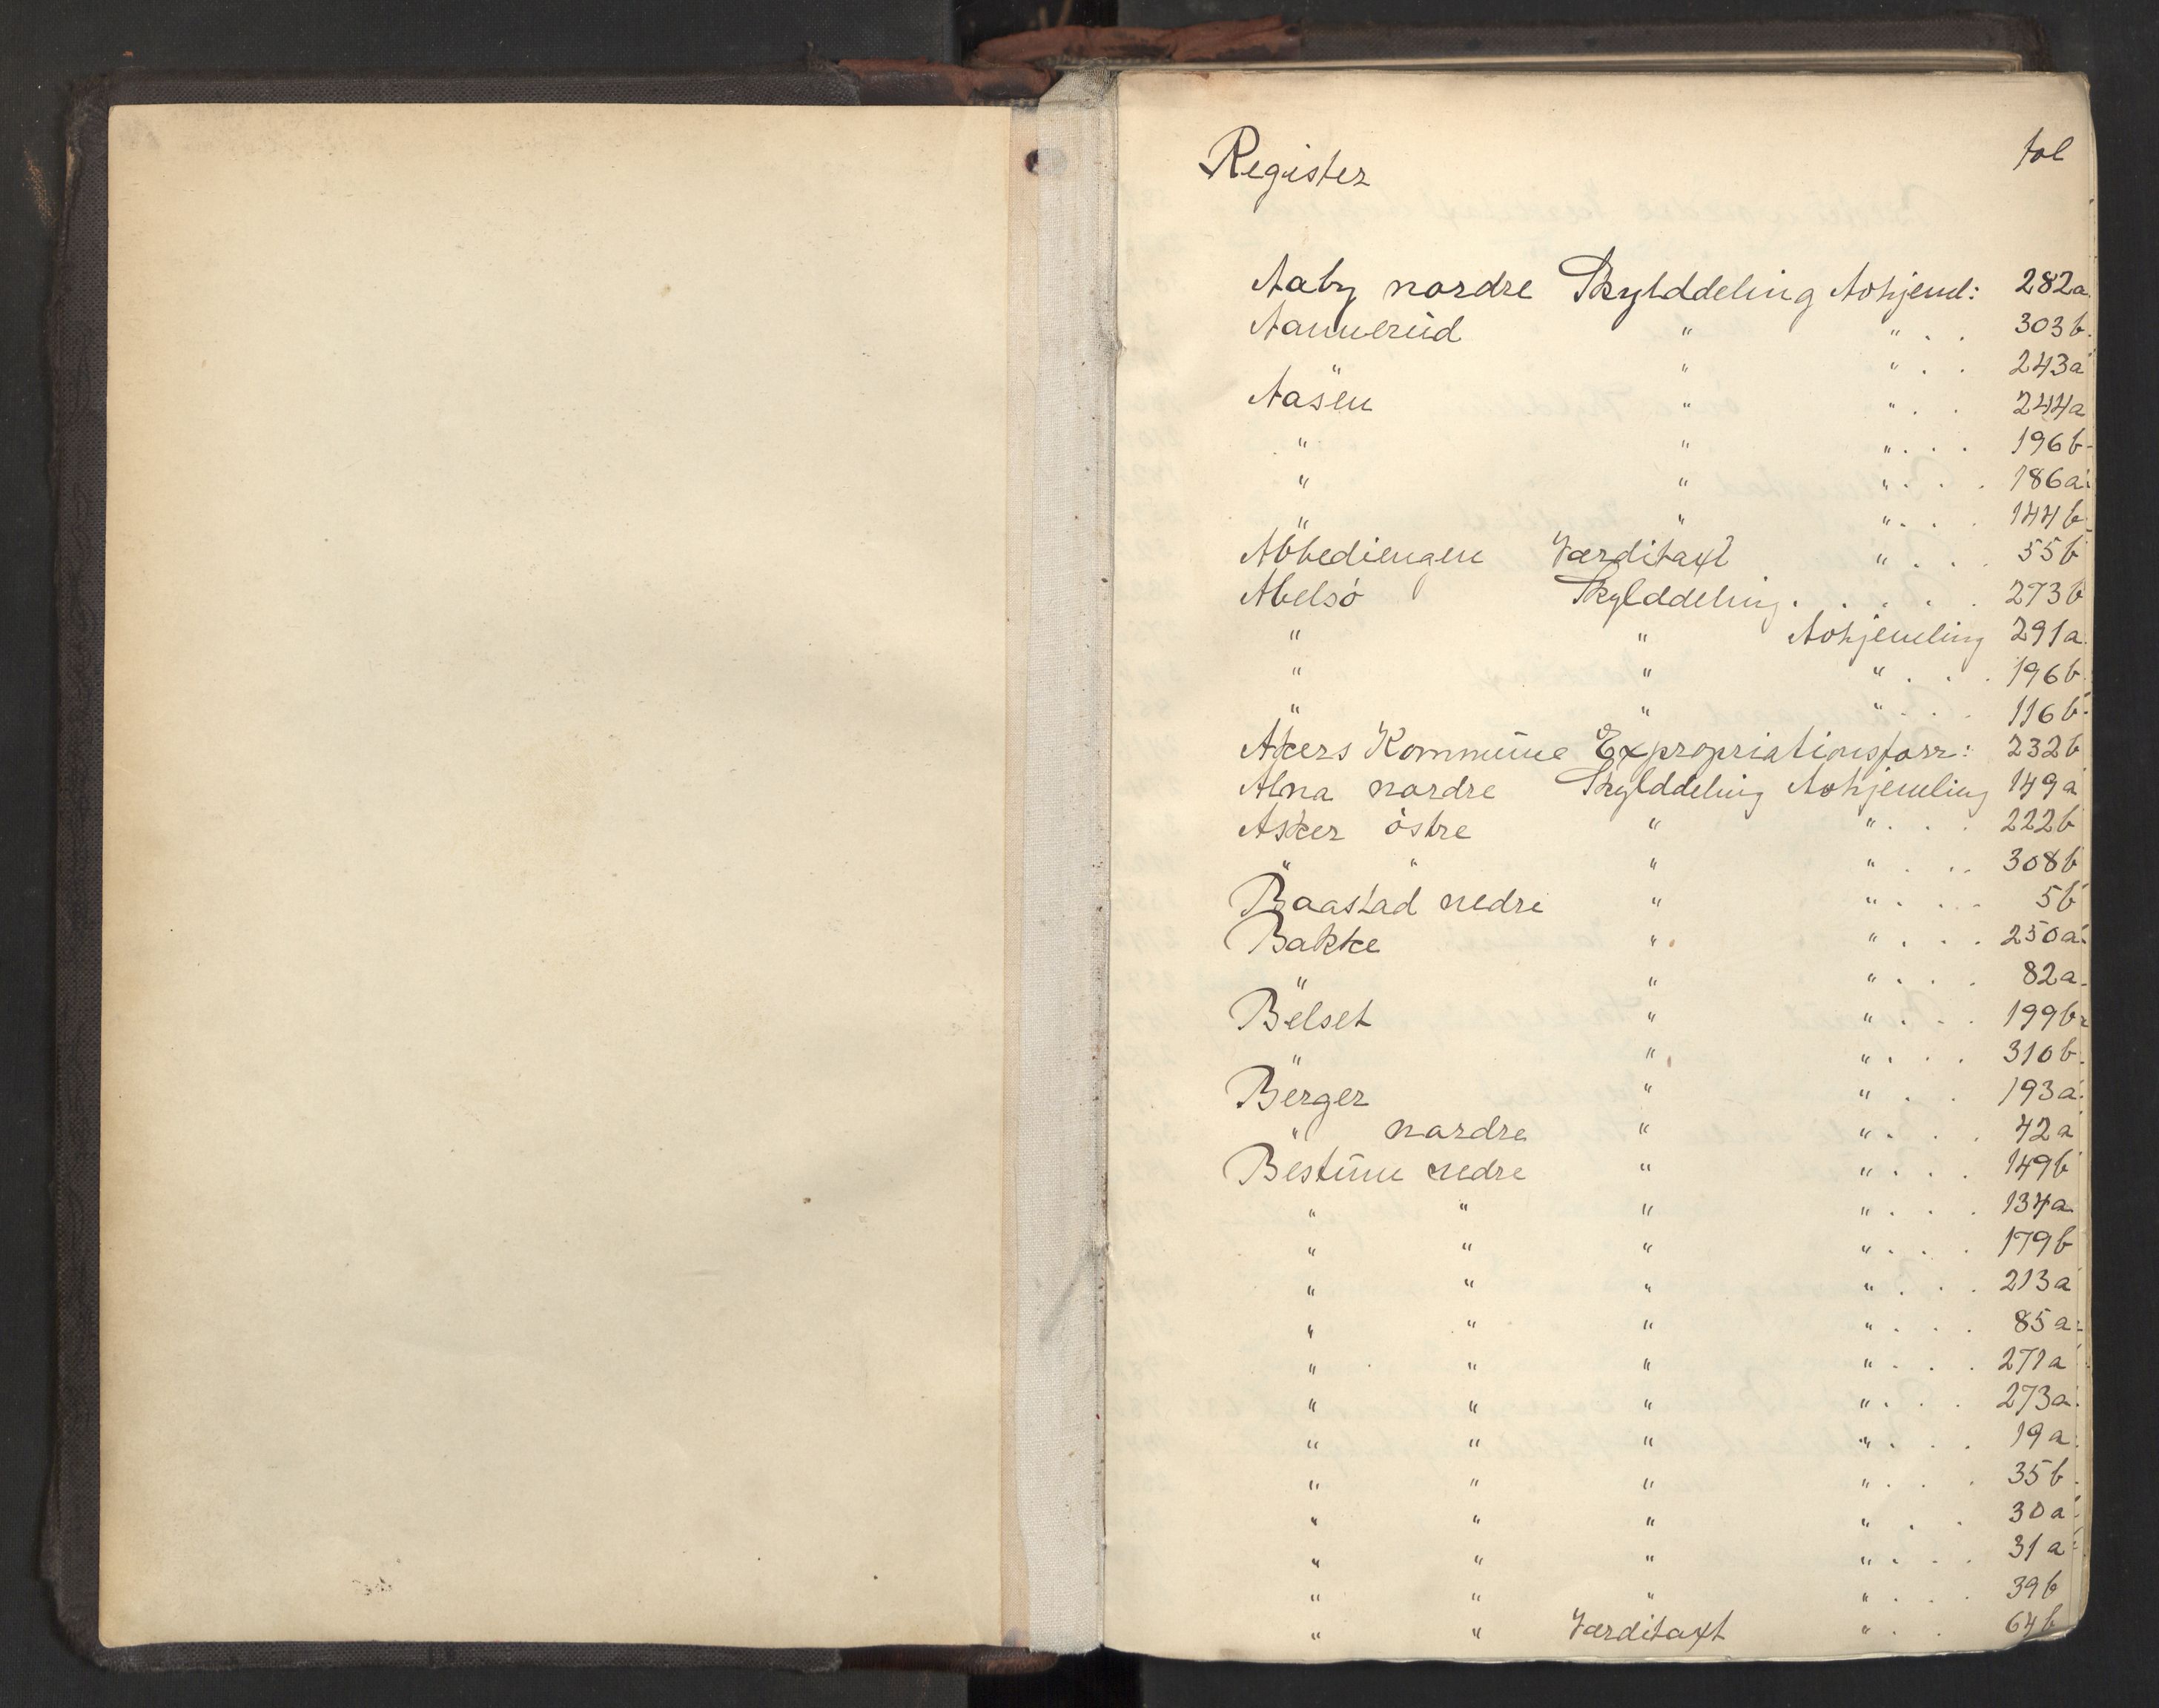 Register
fol
Aaby nordre Skylddeling Avhjeml: 282a
Aamerud " " . . 303b
" " " . . 243a
Aasen " " . . 244a
" " " . . . 196b
" " " . . . 186a
" " " . . . 144b
Abbediengen Værditaxt " . . . 55b
Abelsö Skylddeling . . . . . 273b
" " Avhjemling 291a
" " " . . . 196b
" " " . . . 116b
Akers Kommune Expropriationsforr: 232b
Alna nordre Skylddeling Avhjemling 149a
Asker östre " " . . . 222b
" " " " . . . 308b
Baastad nedre " " . . . . 5b
Bakke " " . . . 250a
" " " . . . . 82a
Belset " " . . . 199b
" " " . . . 310b
Berger " " . . . 193a
" nordre " " . . . . 42a
Bestum nedre " " . . . 149b
" " " " . . . 134a
" " " " . . . 179b
" " " " . . . 213a
" " " " . . . . 85a
" " " " . . . 271a
" " " " . . . 273a
" " " " . . . . 19a
" " " " . . . . 35b
" " " " . . . 30a
" " " " . . . . 31a
" " " " . . . . 39b
" " Værditaxt " . . . 64b